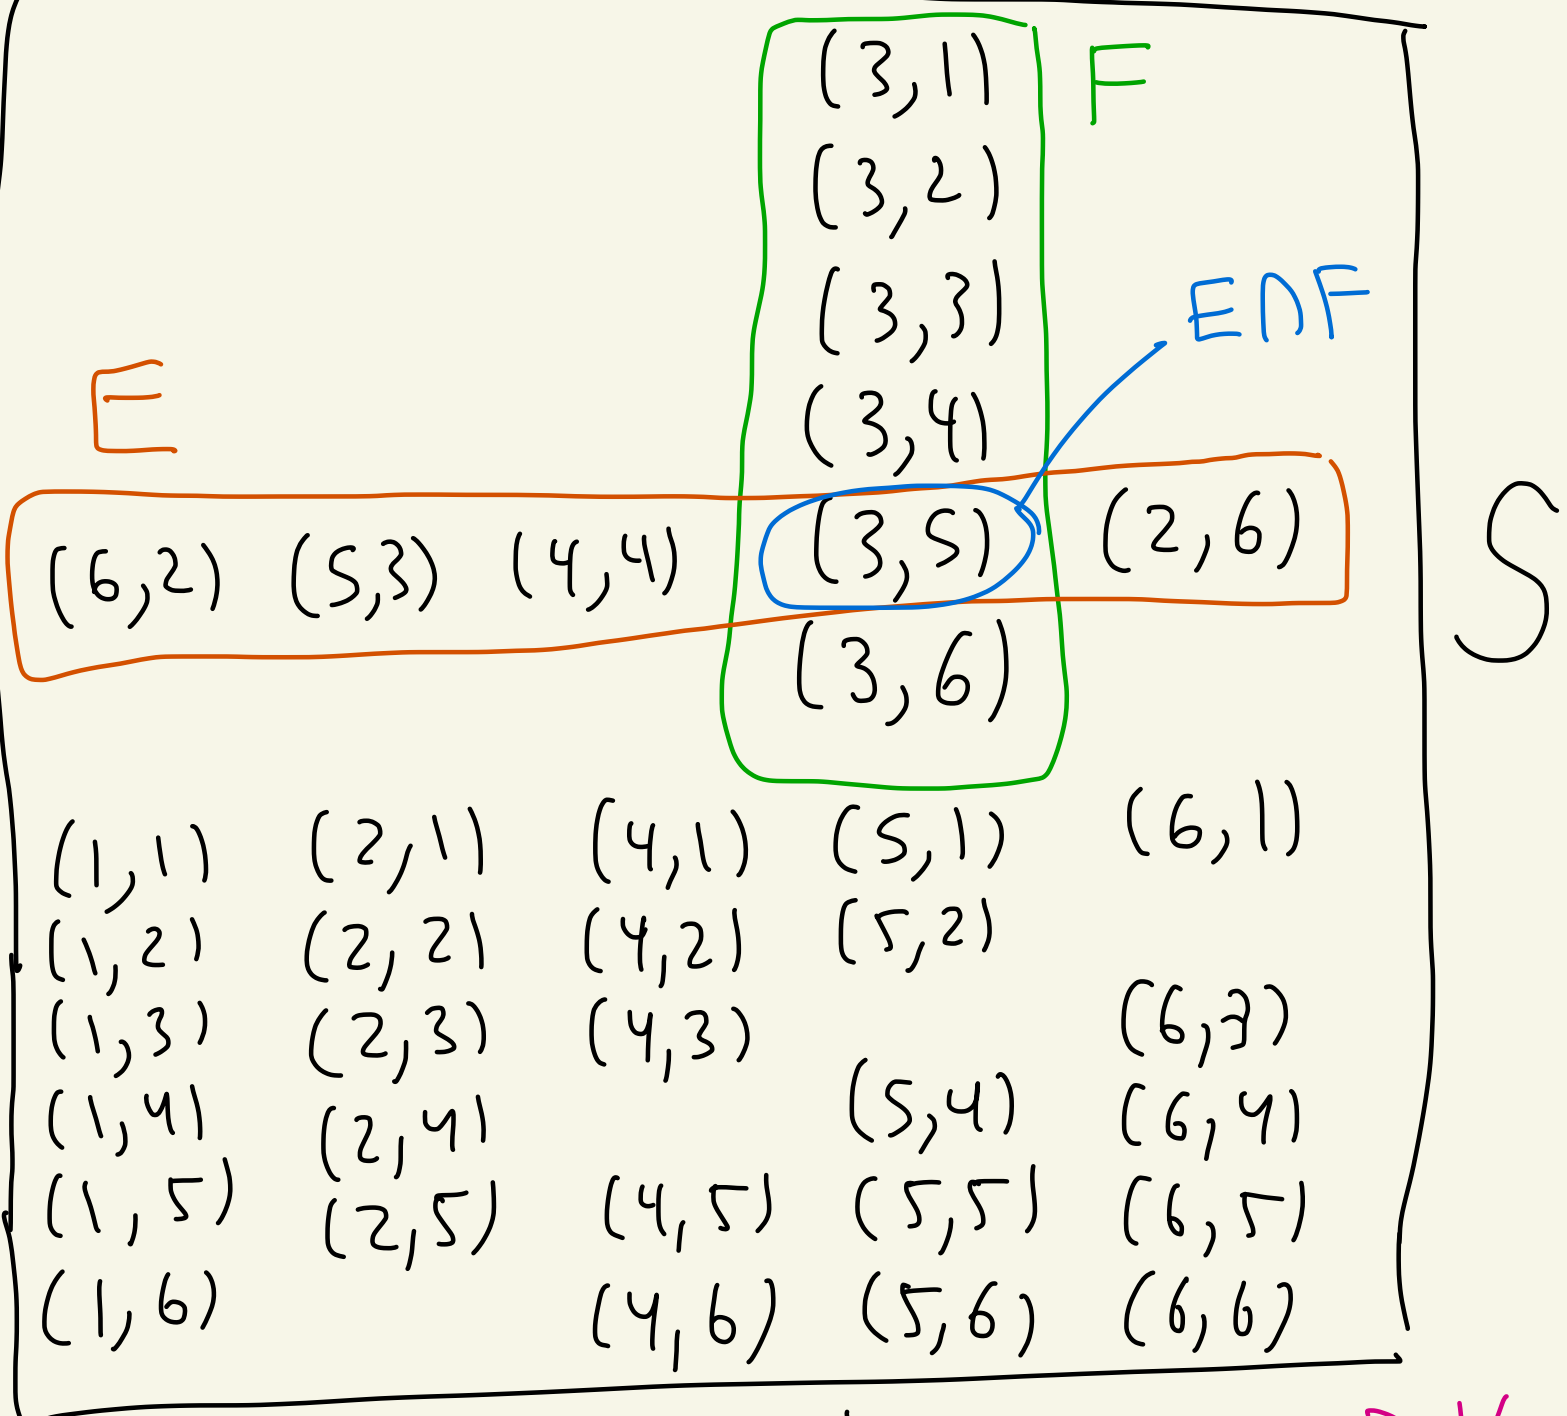 (3,1) F
(3,2)
(3,3) E∩F
(3,4)
E
(6,2) (5,3) (4,4) (3,5) (2,6) S
(3,6)
(1,1) (2,1) (4,1) (5,1) (6,1)
(1,2) (2,2) (4,2) (5,2)
(1,3) (2,3) (4,3) (6,3)
(1,4) (2,4) (5,4) (6,4)
(1,5) (2,5) (4,5) (5,5) (6,5)
(1,6) (4,6) (5,6) (6,6)